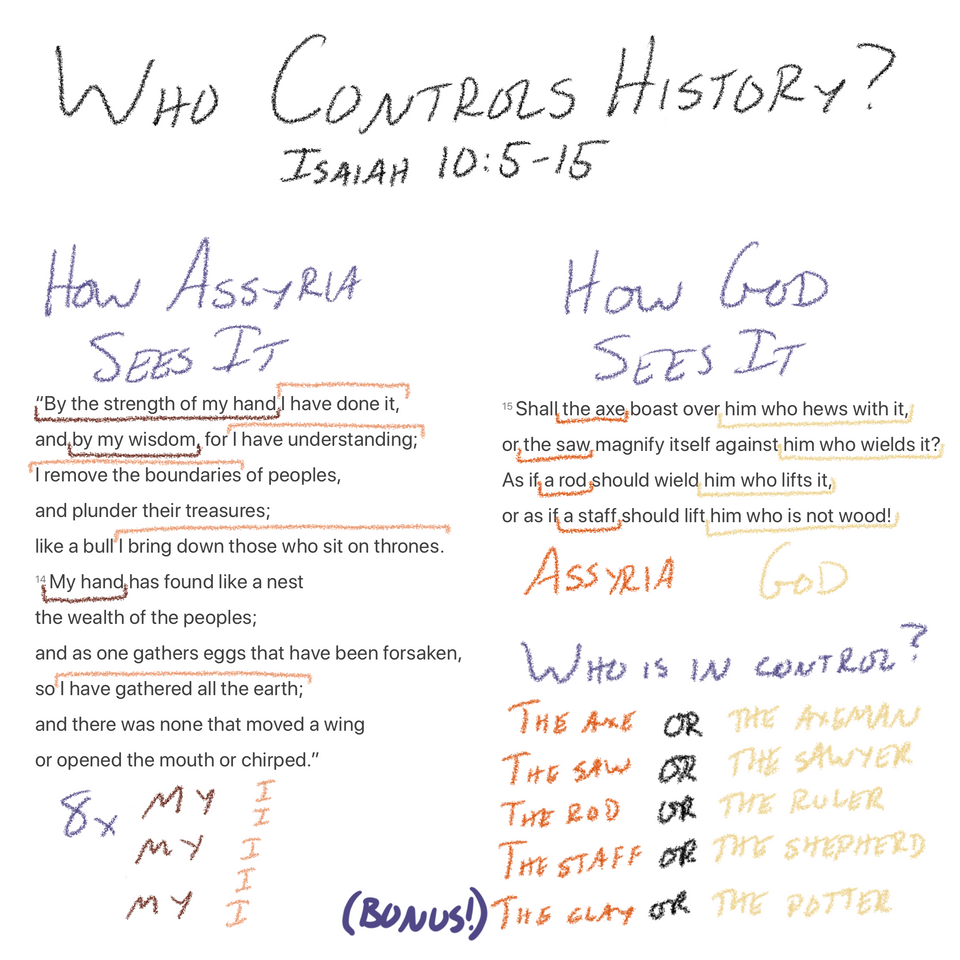 WHO CONTROLS HISTORY?
ISAIAH 10:5-15
HOW ASSYRIA
SEES IT
“By the strength of my hand I have done it,
and by my wisdom, for I have understanding;
I remove the boundaries of peoples,
and plunder their treasures;
like a bull I bring down those who sit on thrones.
14 My hand has found like a nest
the wealth of the peoples;
and as one gathers eggs that have been forsaken,
so I have gathered all the earth;
and there was none that moved a wing
or opened the mouth or chirped.”
8x MY I
I
MY I
I
MY I
HOW GOD
SEES IT
15 Shall the axe boast over him who hews with it,
or the saw magnify itself against him who wields it?
As if a rod should wield him who lifts it,
or as if a staff should lift him who is not wood!
ASSYRIA GOD
WHO IS IN CONTROL?
THE AXE OR THE AXEMAN
THE SAW OR THE SAWYER
THE ROD OR THE RULER
THE STAFF OR THE SHEPHERD
(BONUS!) THE CLAY OR THE POTTER